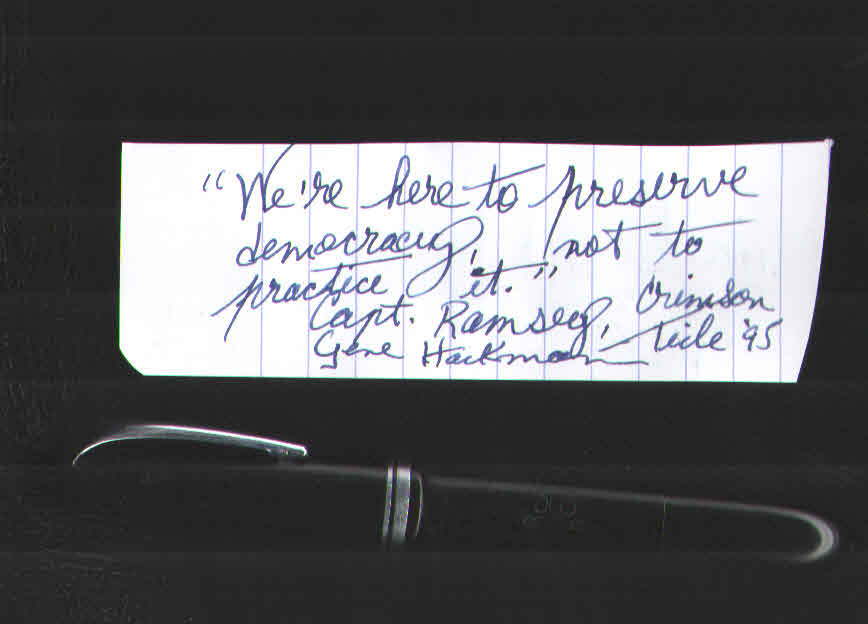 "We're here to preserve
democracy, not to
practice it."
Capt. Ramsey, Crimson
Gene Hackman Tide '95